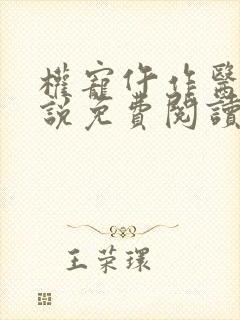 權寵仵作醫
說免費閱讀
王荣環